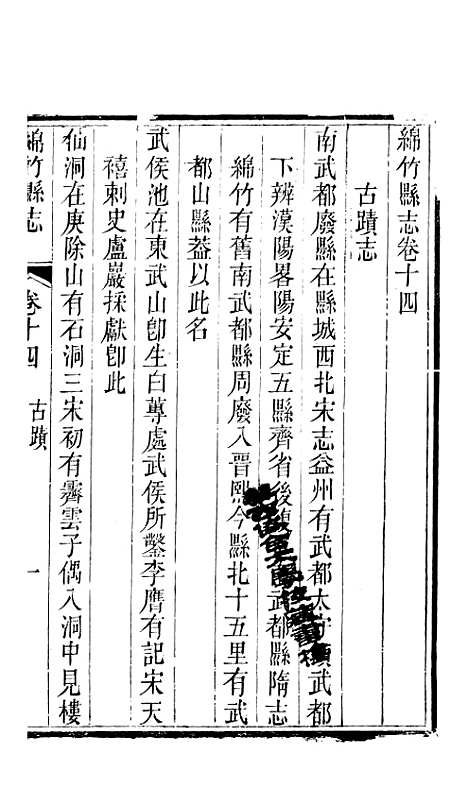 綿竹縣志卷十四
古蹟志
南武都廢縣在縣城西北宋志益州有武都太守領武都
下辨漢陽畧陽安定五縣齊省後武都縣隋志
綿竹有舊南武都縣周廢入晉熙今縣北十五里有武
都山縣葢以此名
武侯池在東武山卽生白蓴處武侯所鑿李膺有記宋天
禧刺史盧巖採獻卽此
仙洞在庚除山有石洞三宋初有霽雲子偶入洞中見樓
綿竹縣志 卷十四 古蹟 一